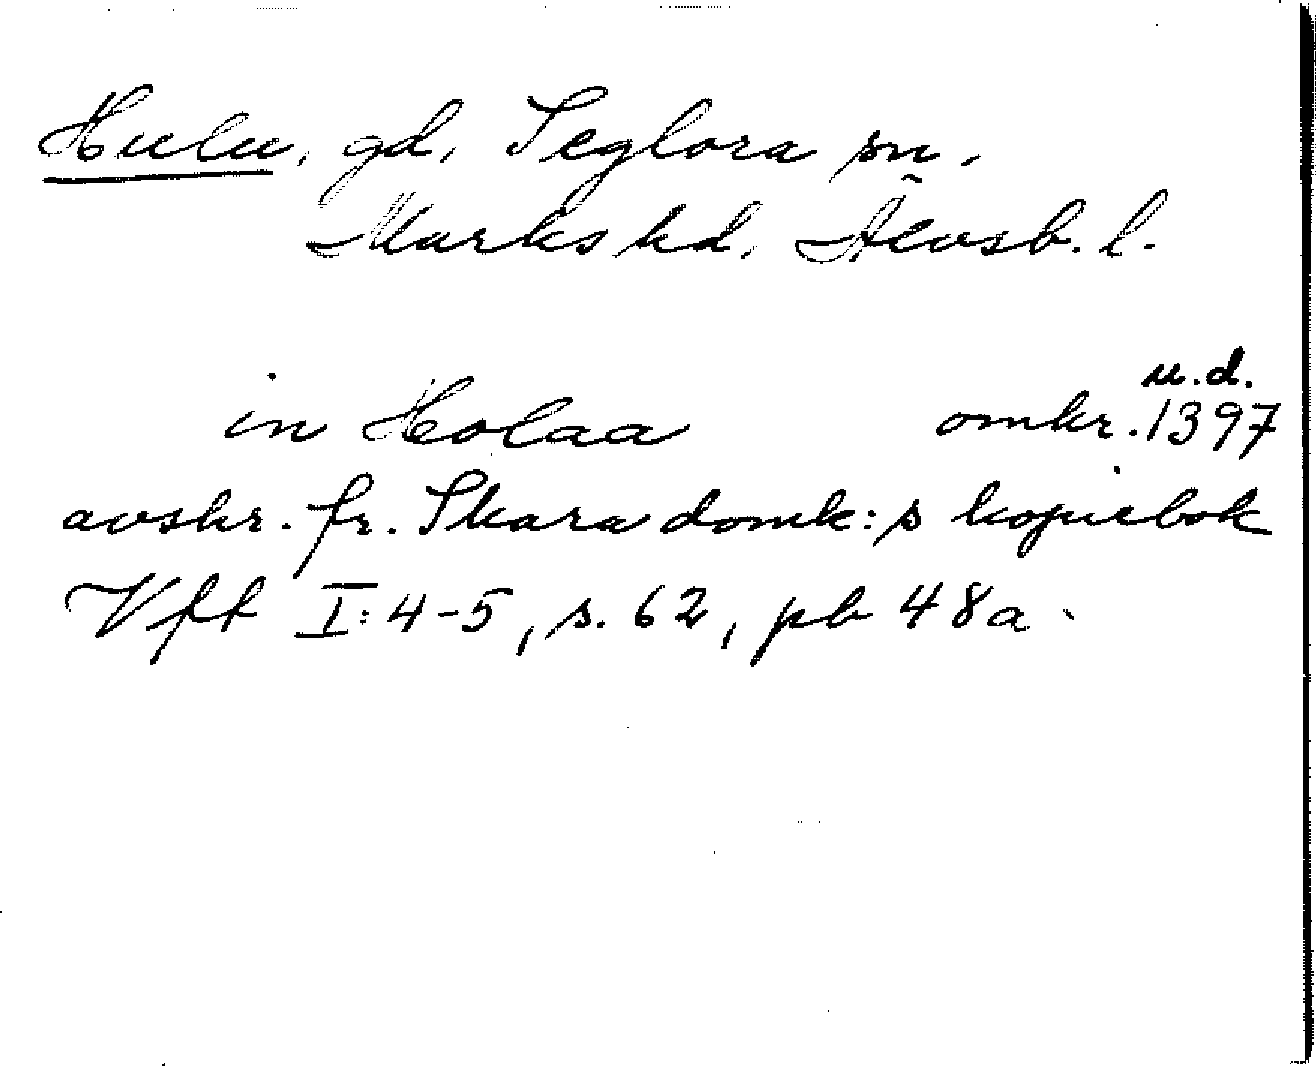 Hulu, gd, Seglora sn.
Marks hd, Älvsb. l.
u.d.
in Holaa omkr. 1397
avskr. fr. Skara domk:s kopiebok
Vft I: 4-5, s. 62, pb 48a.